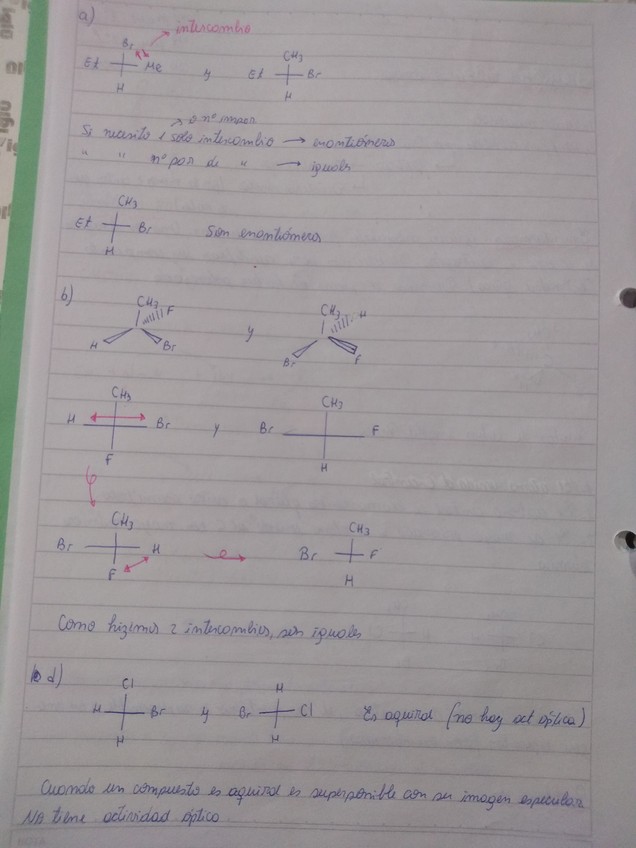 a)
intercambio
Br
Et Me y
H
CH3
Et Br
H
→ o nº impar
Si necesito 1 solo intercambio → enantiómeros
" " nº par de " → iguales
CH3
Et Br Son enantiómeros
H
b)
CH3 F
H Br
y
CH3 H
Br F
CH3
H Br y
F
CH3
Br F
H
CH3
Br H
F
→
CH3
Br F
H
Como hizimos 2 intercambios, son iguales
d)
Cl
H Br y
H
H
Br Cl Es aquiral (no hay act óptica)
H
Cuando un compuesto es aquiral es superponible con su imagen especular.
No tiene actividad óptica